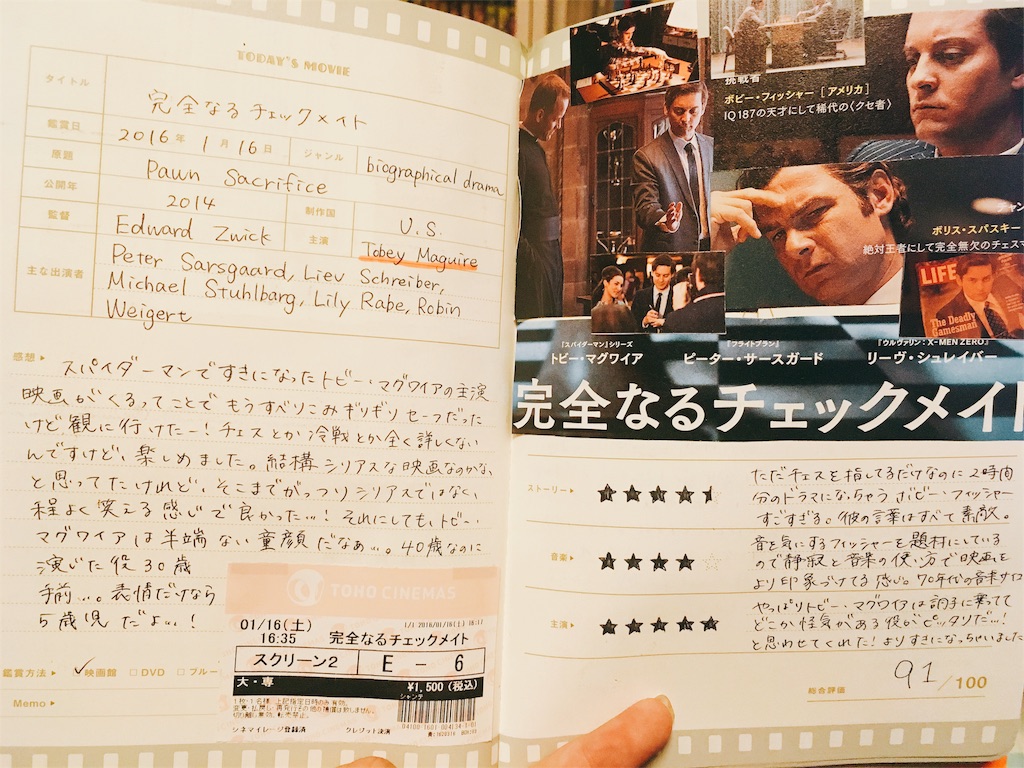 TODAY'S MOVIE
タイトル
完全なるチェックメイト
鑑賞日
2016年 1月16日
ジャンル
biographical drama
原題
Pawn Sacrifice
公開年
2014
制作国
U.S.
監督
Edward Zwick
主演
Tobey Maguire
主な出演者
Peter Sarsgaard, Liev Schreiber,
Michael Stuhlbarg, Lily Rabe, Robin
Weigert
感想
スパイダーマンですきになったトビー・マグワイアの主演
映画がくるってことでもうすべりこみギリギリセーフだった
けど観に行けたー!チェスとか冷戦とか全く詳しくない
んですけど、楽しめました。結構シリアスな映画なのかな、
と思ってたけれど、そこまでがっつりシリアスではなく、
程よく笑える感じで良かった…!それにしても、トビー・
マグワイアは半端ない童顔だなぁ…。40歳なのに
演じた役30歳
手前…。表情だけなら
5歳児だよ…!
TOHO CINEMAS
01/16(土)
1/1 2016/01/16(土) 16:17
16:35 完全なるチェックメイト
スクリーン2 E - 6
大・専
¥1,500(税込)
シャンテ
1枚・1名様、上記指定日時のみ有効。
変更・払戻し・再発行その他の補償は致しません。
切り離し無効、転売禁止。
シネマイレージ登録済 クレジット決済
鑑賞方法 映画館 DVD ブルー
Memo
挑戦者
ボビー・フィッシャー[アメリカ]
IQ187の天才にして稀代の〈クセ者〉
チャン
ボリス・スパスキー
絶対王者にして完全無欠のチェスマ
LIFE
The Deadly
Gamesman
『スパイダーマン』シリーズ
トビー・マグワイア
『フライトプラン』
ピーター・サースガード
『ウルヴァリン:X-MEN ZERO』
リーヴ・シュレイバー
完全なるチェックメイト
ストーリー
ただチェスを指してるだけなのに2時間
分のドラマになっちゃうボビー・フィッシャー
すごすぎる。彼の言葉はすべて素敵。
音楽
音を気にするフィッシャーを題材にしている
ので静寂と音楽の使い方で映画を
より印象づけてる感じ。70年代の音楽サイコ
主演
やっぱりトビー・マグワイアは調子に乗ってて
どこか怪気がある役がピッタリだ…!
と思わせてくれた!よりすきになっちゃいました
総合評価
91/100